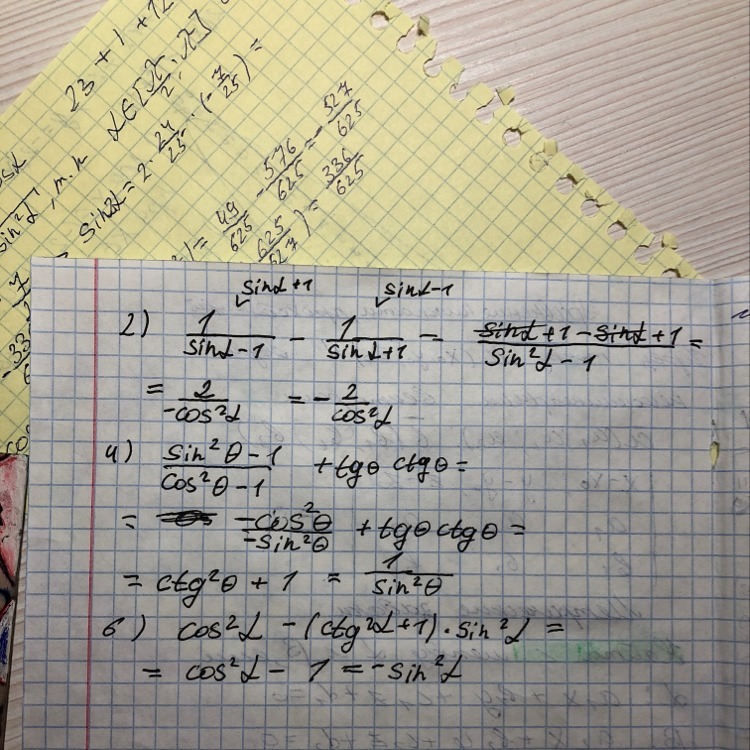 23 + 1 + 12
α∈[π/2; π]
sin²α, т.к
sin2α = 2 · 24/25 · (-7/25) =
= 49/625 - 576/625 = -527/625
= 336/625
sinα+1 sinα-1
2) 1/(sinα-1) - 1/(sinα+1) = (sinα+1-sinα+1)/(sin²α-1) =
= 2/(-cos²α) = -2/cos²α
4) (sin²θ-1)/(cos²θ-1) + tgθ ctgθ =
= (-cos²θ)/(-sin²θ) + tgθ ctgθ =
= ctg²θ + 1 = 1/sin²θ
6) cos²α - (ctg²α+1)·sin²α =
= cos²α - 1 = -sin²α